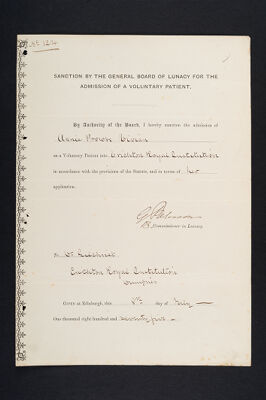 SANCTION BY THE GENERAL BOARD OF LUNACY FOR THE
ADMISSION OF A VOLUNTARY PATIENT.
By Authority of the Board, I hereby sanction the admission of
Annie Prowse Vivian
as a Voluntary Patient into Crichton Royal Institution
in accordance with the provisions of the Statute, and in terms of her
application.
Commissioner in Lunacy.
To Dr.
Crichton Royal Institution
Dumfries
GIVEN at Edinburgh, this 8th day of July
One thousand eight hundred and seventy five